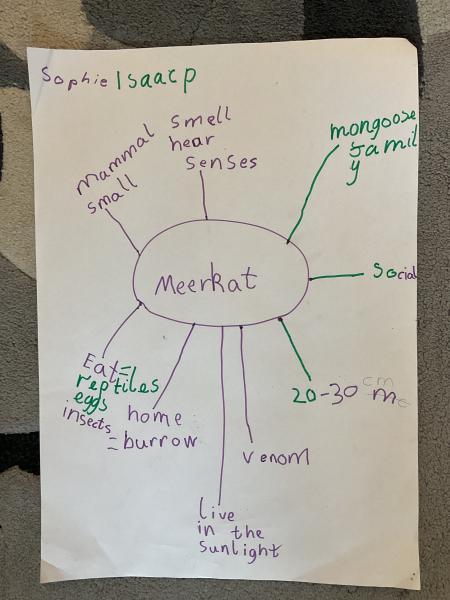 Sophie Isaac p
smell
hear
senses
mammal
small
mongoose
famil
y
Meerkat
Social
Eat=
reptiles
eggs
insects
home
=burrow
venom
20-30 cm
live
in the
sunlight